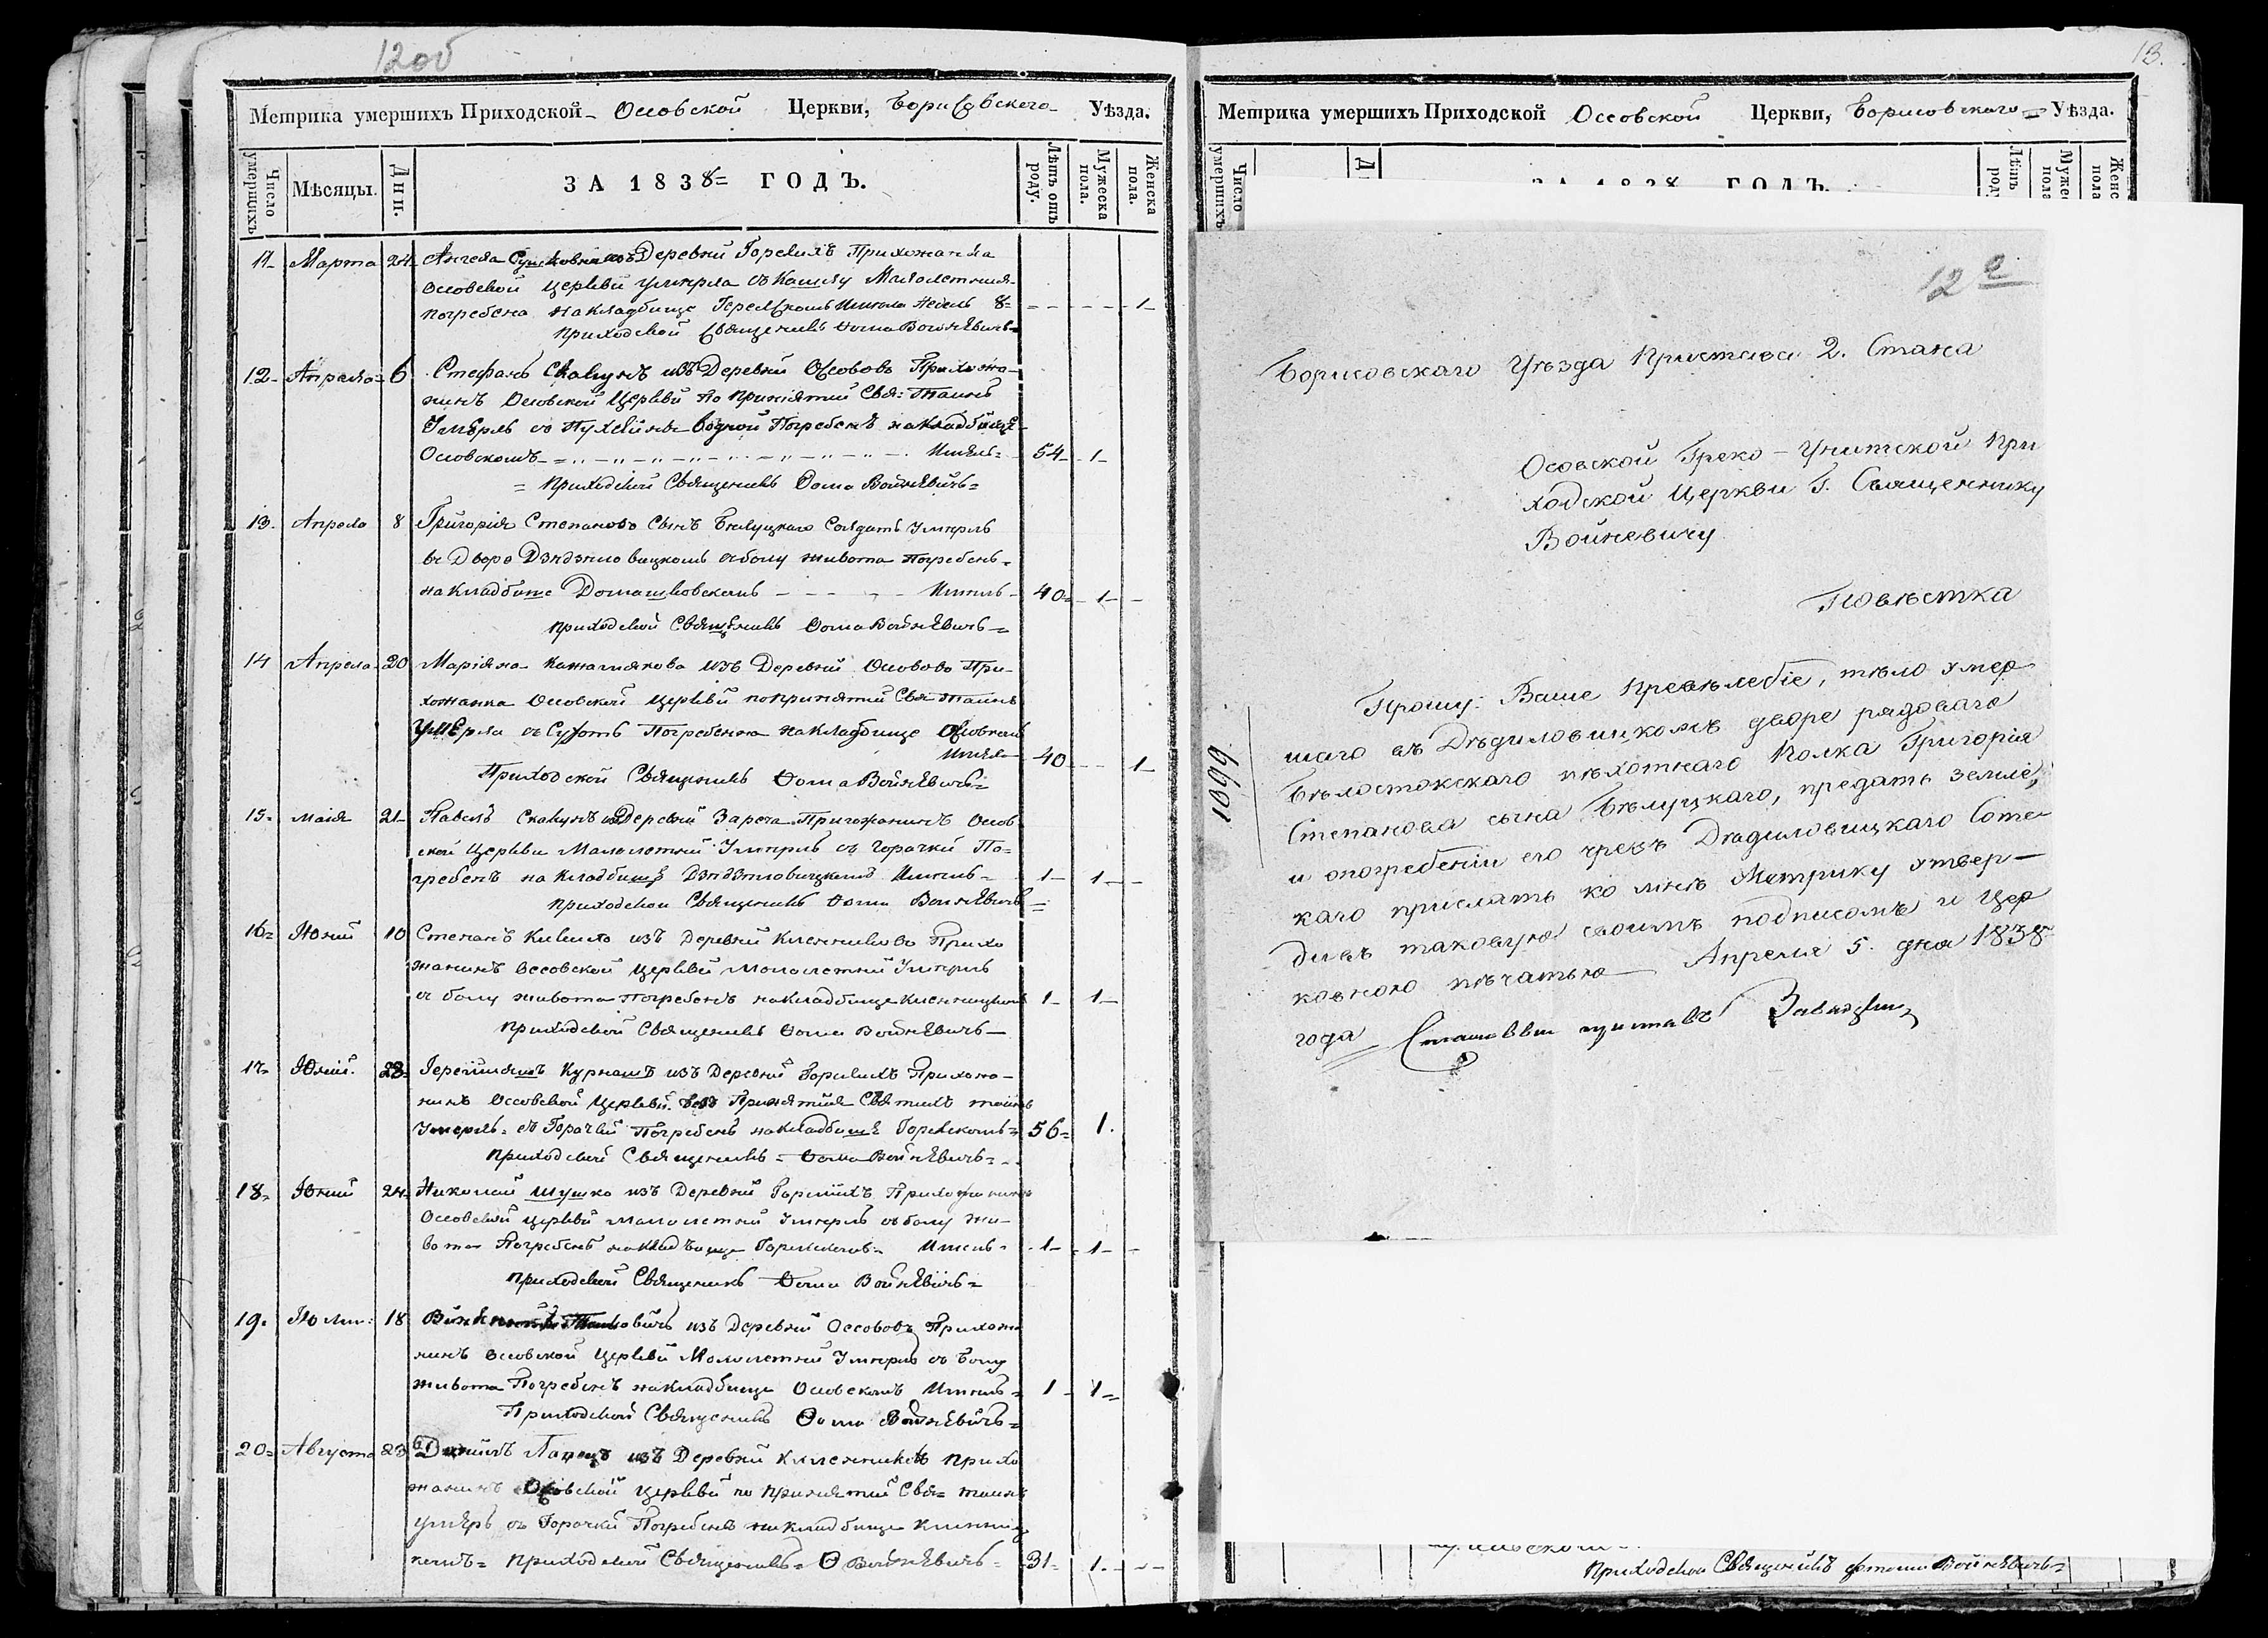 12об
Метрика умершихъ Приходской Оссовской Церкви, Борисовского Уѣзда.
Число умершихъ
Мѣсяцы.
Дни.
ЗА 1838 ГОДЪ.
Лѣтъ отъ роду.
Мужеска пола.
Женска пола.
11 Марта 24 Ангела изъ Деревни Прихожанка
Оссовской Церкви умерла съ Кашлю Малолетния
погребена на кладбище Имела недель 8 1
приходской Священникъ Фома Войневичъ
12 Апреля 6 Стефанъ Скакунъ изъ Деревни Оссововъ Прихожа-
нинъ Осовской Церкви по принятии Свя: Таинъ
Умеръ съ водной Погребенъ на кладбище
Осовскомъ Имелъ 54 1
приходской Священникъ Фома Войневичъ
13 Апреля 8 Григория Степанова Сынъ Белуцкаго Солдатъ Умерлъ
въ Дворе съ болу живота погребенъ
на кладбише Домашковскомъ Имелъ 40 1
приходской Священникъ Фома Войневичъ
14 Апреля 20 Марiяна изъ Деревни Осовово При-
хожанка Осовской Церкви по принятии Свя Таинъ
Умерла съ Сухотъ Погребенна на кладбище
Имела 40 1
Приходской Священникъ Фома Войневичъ
15 маiя 21 Павелъ Скакунъ изъ Деревни Зареча Прихожанинъ Осов
ской Церкви Малолетний Умерлъ съ горачки По-
гребенъ на Кладбище Имелъ 1 1
приходской Священникъ Фома Войневичъ
16 Юний 10 Степанъ изъ Деревни Прихо
жанинъ Оссовской Церкви Малолетний Умерлъ
съ болу живота погребенъ на кладбище 1 1
приходской Священникъ Фома Войневичъ
17 28 Курнашъ изъ Деревни Прихожа-
нинъ Оссовской Церкви безъ Принятия Святыхъ таинъ
Умерлъ съ Горачки Погребенъ на кладбище 56 1
приходской Священникъ Фома Войневичъ
18 Юний 24 Николай Шушко изъ Деревни Прихожанинъ
Оссовской Церкви малолетний Умерлъ съ болу жи-
вота Погребенъ на кладбище Имелъ 1 1
приходской Священникъ Фома Войневичъ
19 18 изъ Деревни Оссововъ Прихожа
нинъ Осовской Церкви Малолетний Умерлъ съ болу
живота Погребенъ на кладбище Осовскомъ Имелъ 1 1
Приходской Священникъ Фома Войневичъ
20 Августа 23 изъ Деревни Прихо
жанинъ Осовской Церкви по принятии Свя= таинъ
умеръ съ Горачки Погребенъ на кладбище
приходской Священникъ Ф Войневичъ 31 1
13.
Метрика умершихъ Приходской Оссовской Церкви, Борисовскаго Уѣзда.
Число умершихъ
Д
ЗА 1838 ГОДЪ.
12 а
Борисовскаго Уѣзда Пристава 2. Стана
Осовской Греко-Унитской При
ходской Церкви Г. Священнику
Войневичу
Повѣстка
1099
Прошу Ваше Превѣлебiе, тѣло умер
шаго въ Дѣдиловицкомъ дворе рядоваго
Бѣлостокскаго пѣхотнаго Полка Григорiя
Степанова сына Бѣлуцкаго, предать земле,
и опогребенiи его чрезъ Дѣдиловицкаго Сотс
каго прислать ко мнѣ Метрику утвер-
дивъ таковую своимъ подписомъ и Цер
ковною пѣчатью Апреля 5. дня 1838
года Становый приставъ
Приходской Священникъ Войневичъ